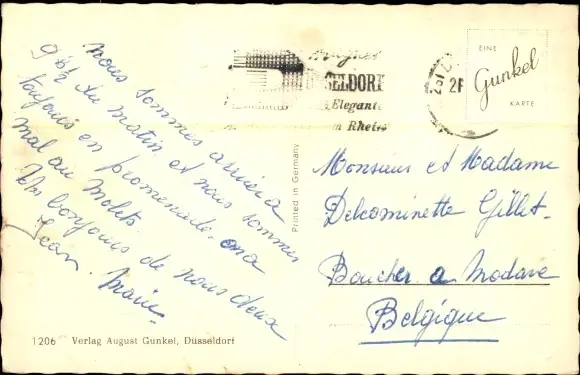 nous sommes arrivé a
9 h ½ du matin et nous sommes
toujours en promenade. on a
mal au molets
bonjours de nous deux
Jean. Marie
SELDORF
Elegante
Rheins
EINE
Gunkel
KARTE
Printed in Germany
Monsieur et Madame
Delcominette Gillet.
Boucher a Modave
Belgique
1206 Verlag August Gunkel, Düsseldorf